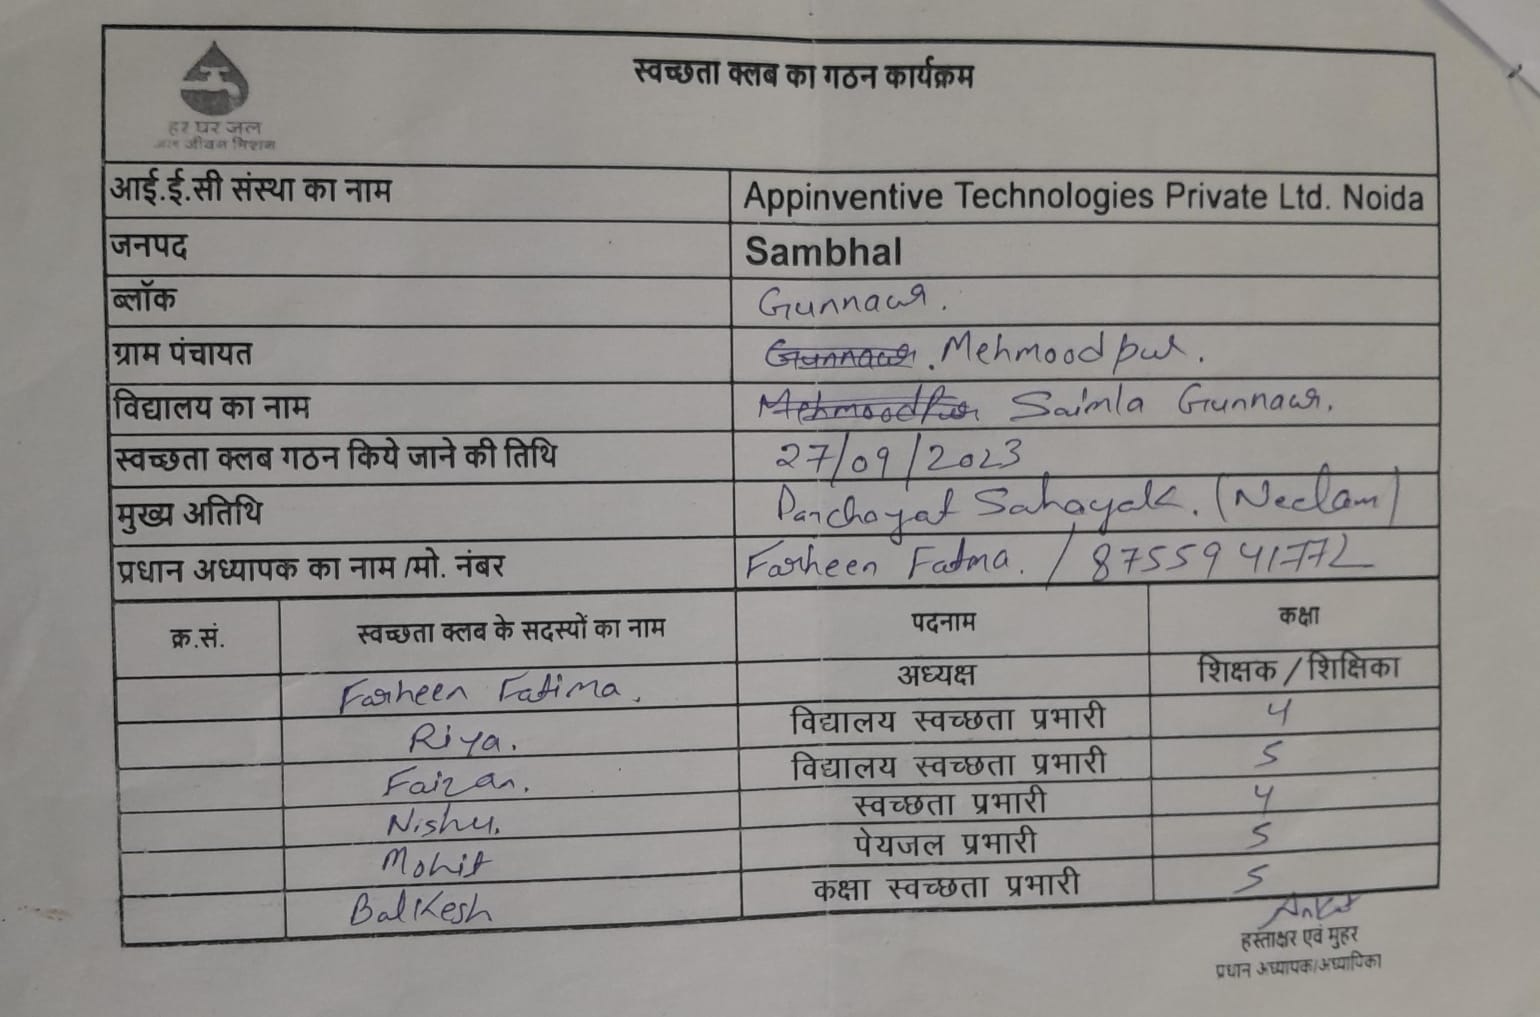 स्वच्छता क्लब का गठन कार्यक्रम
हर घर जल
जल जीवन मिशन
आई.ई.सी संस्था का नाम Appinventive Technologies Private Ltd. Noida
जनपद Sambhal
ब्लॉक Gunnaur.
ग्राम पंचायत Gunnaur. Mehmoodpur.
विद्यालय का नाम Mehmoodpur Saimla Gunnaur.
स्वच्छता क्लब गठन किये जाने की तिथि 27/09/2023
मुख्य अतिथि Panchayat Sahayak. (Neelam)
प्रधान अध्यापक का नाम /मो. नंबर Farheen Fatma. / 8755941772
क्र.सं. स्वच्छता क्लब के सदस्यों का नाम पदनाम कक्षा
Farheen Fatima. अध्यक्ष शिक्षक / शिक्षिका
Riya. विद्यालय स्वच्छता प्रभारी 4
Faizan. विद्यालय स्वच्छता प्रभारी 5
Nishu. स्वच्छता प्रभारी 4
Mohit पेयजल प्रभारी 5
Balkesh कक्षा स्वच्छता प्रभारी 5
हस्ताक्षर एवं मुहर
प्रधान अध्यापक/अध्यापिका